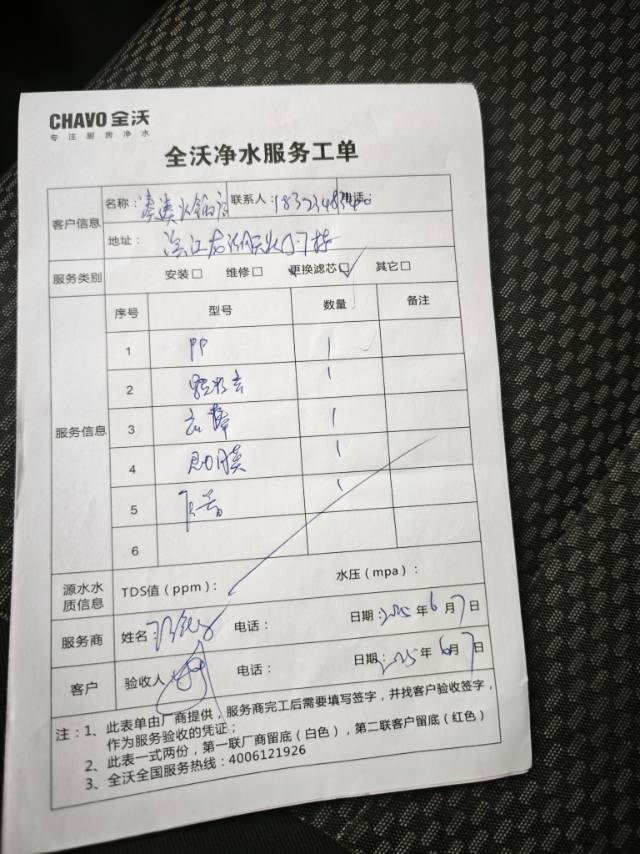 CHAVO 全沃
专注厨房净水
全沃净水服务工单
客户信息 名称： 火锅店 联系人： 电话：
地址： 滨江 7栋
服务类别 安装□ 维修□ 更换滤芯□ 其它□
服务信息 序号 型号 数量 备注
1 PP 1
2 1
3 1
4 RO膜 1
5 1
6
源水水质信息 TDS值（ppm）： 水压（mpa）：
服务商 姓名： 电话： 日期：2025年6月7日
客户 验收人： 电话： 日期：2025年6月7日
注：1、此表单由厂商提供，服务商完工后需要填写签字，并找客户验收签字，
作为服务验收的凭证；
2、此表一式两份，第一联厂商留底（白色），第二联客户留底（红色）
3、全沃全国服务热线：4006121926